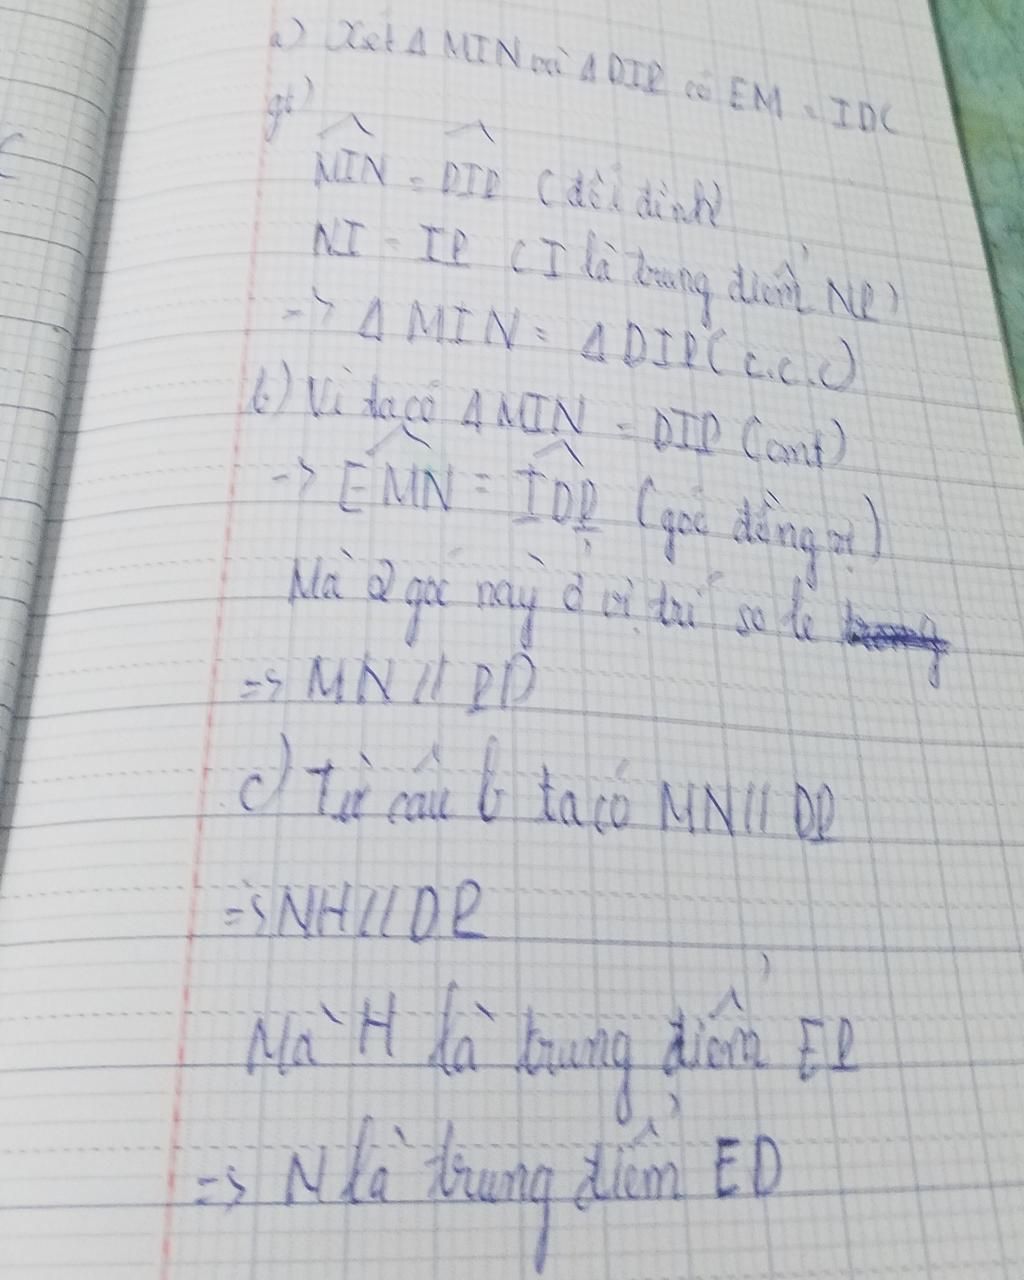 a) Xét Δ MIN và Δ DIP có EM = ID (
gt)
MIN = DIP (đối đỉnh)
NI = IP (I là trung điểm NP)
=> Δ MIN = Δ DIP (c.c.c)
b) Vì ta có Δ MIN = DIP (cmt)
=> EMN = IDP (góc đồng vị)
Mà 2 góc này ở vị trí so le
=> MN // PD
c) Từ câu b ta có MN // DP
=> NH // DP
Mà H là trung điểm EP
=> N là trung điểm ED